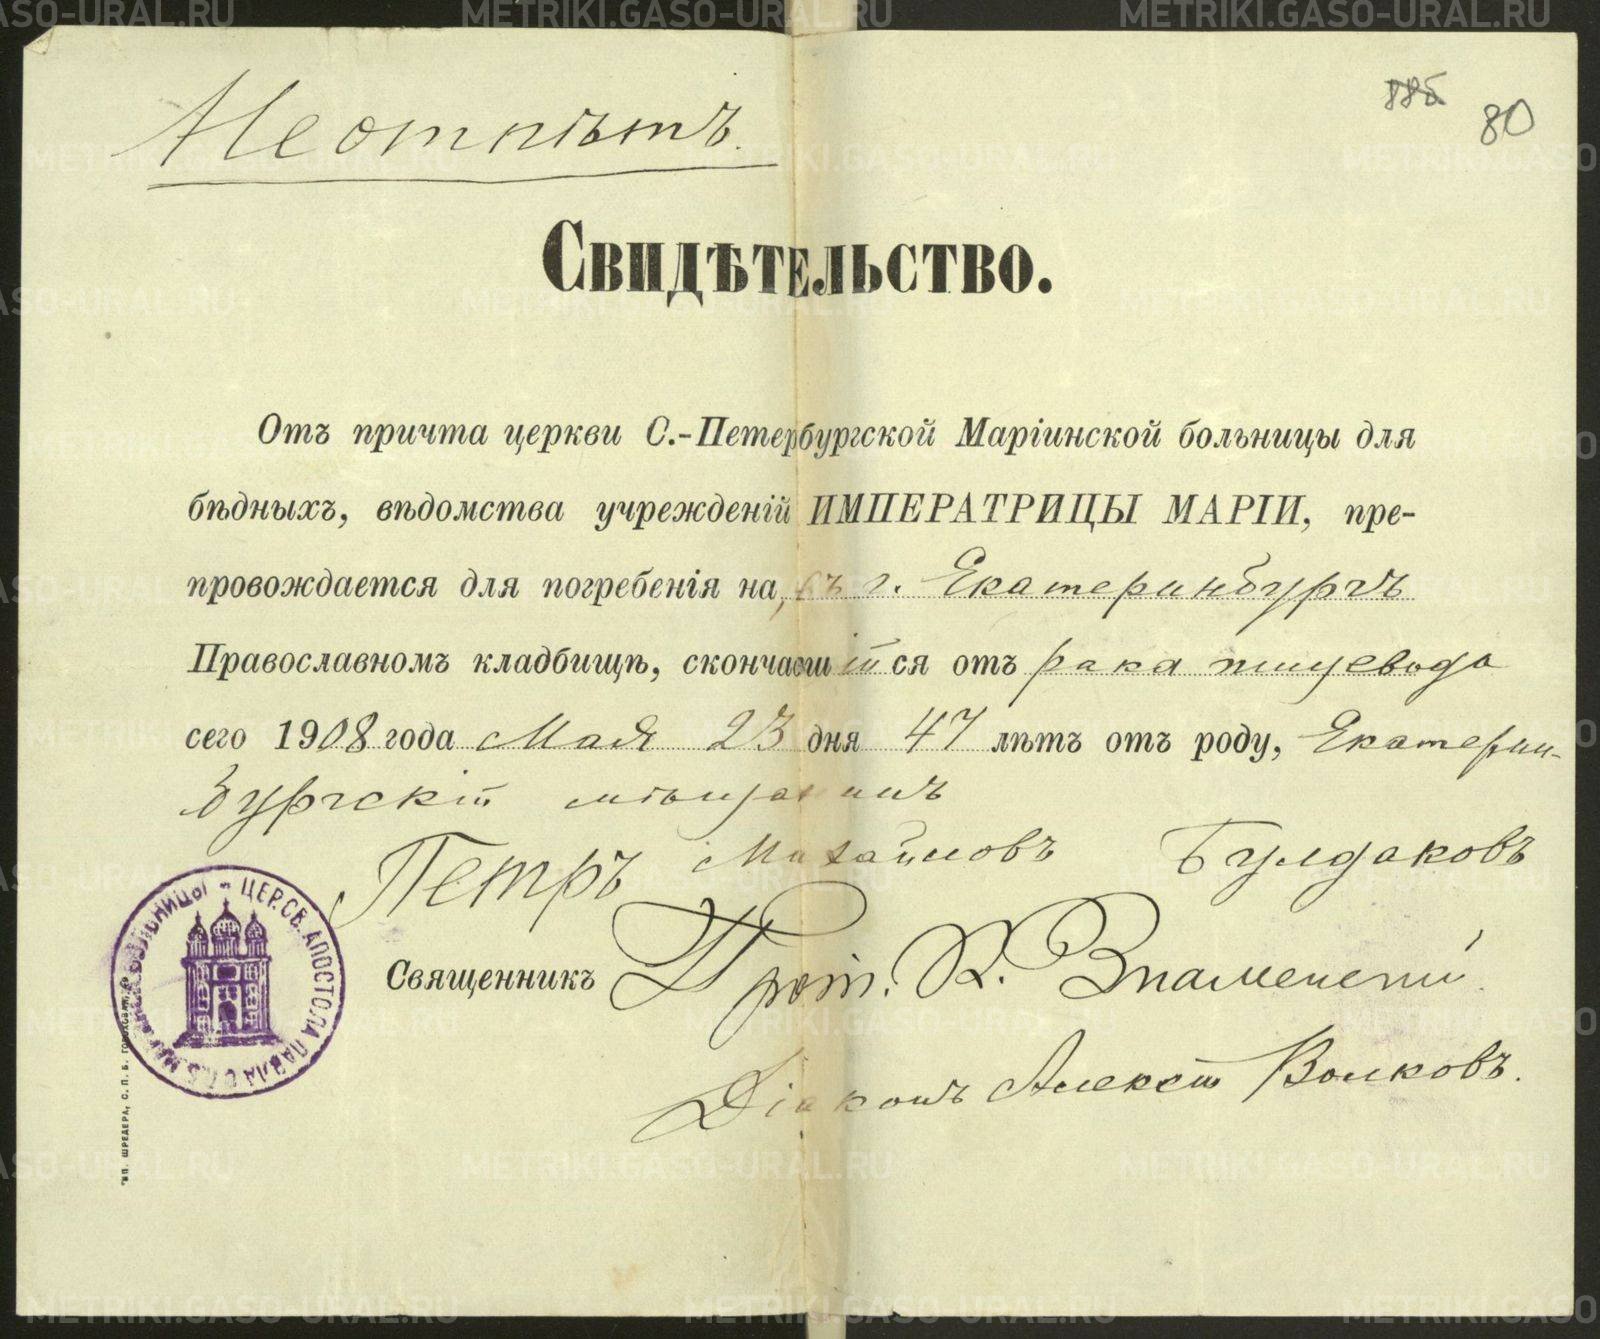 Неотпѣтъ.
885
80
Свидѣтельство.
Отъ причта церкви С.-Петербургской Маріинской больницы для
бѣдныхъ, вѣдомства учрежденій ИМПЕРАТРИЦЫ МАРІИ, пре-
провождается для погребенія на, въ г. Екатеринбургъ
Православномъ кладбищѣ, скончавшійся отъ рака пищевода
сего 1908 года Мая 23 дня 47 лѣтъ отъ роду, Екатерин-
бургскій мѣщанинъ
Петръ Михайловъ Булдаковъ
Священникъ Прот. К. Знаменскій.
Діаконъ Алексѣй Волковъ.
ЦЕР. СВ. АПОСТОЛА ПАВЛА С.П.Б. МАРІИНСКОЙ БОЛЬНИЦЫ
ТИП. ШРЕДЕРА, С. П. Б. ГОРОХОВАЯ
METRIKI.GASO-URAL.RU